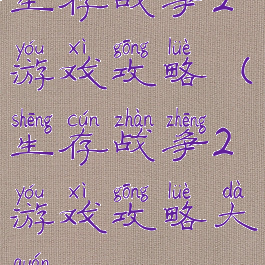 生存战争2
yóu xì gōng luè
游戏攻略（
shēng cún zhàn zhēng
生存战争2
yóu xì gōng luè dà
游戏攻略大